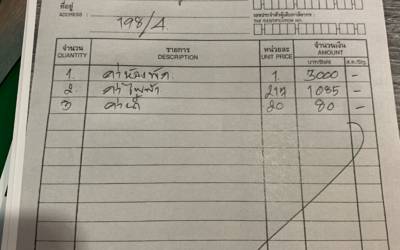 ที่อยู่
ADDRESS : 198/1.
เลขประจำตัวผู้เสียภาษีอากร :
TAX IDENTIFICATION NO.
จำนวน รายการ หน่วยละ จำนวนเงิน
QUANTITY DESCRIPTION UNIT PRICE AMOUNT
บาท/Baht ส.ต./Stg.
1. ค่าห้องพัก. 1. 3000 -
2 ค่าไฟฟ้า 217 1085 -
3 ค่าน้ำ 20 80 -